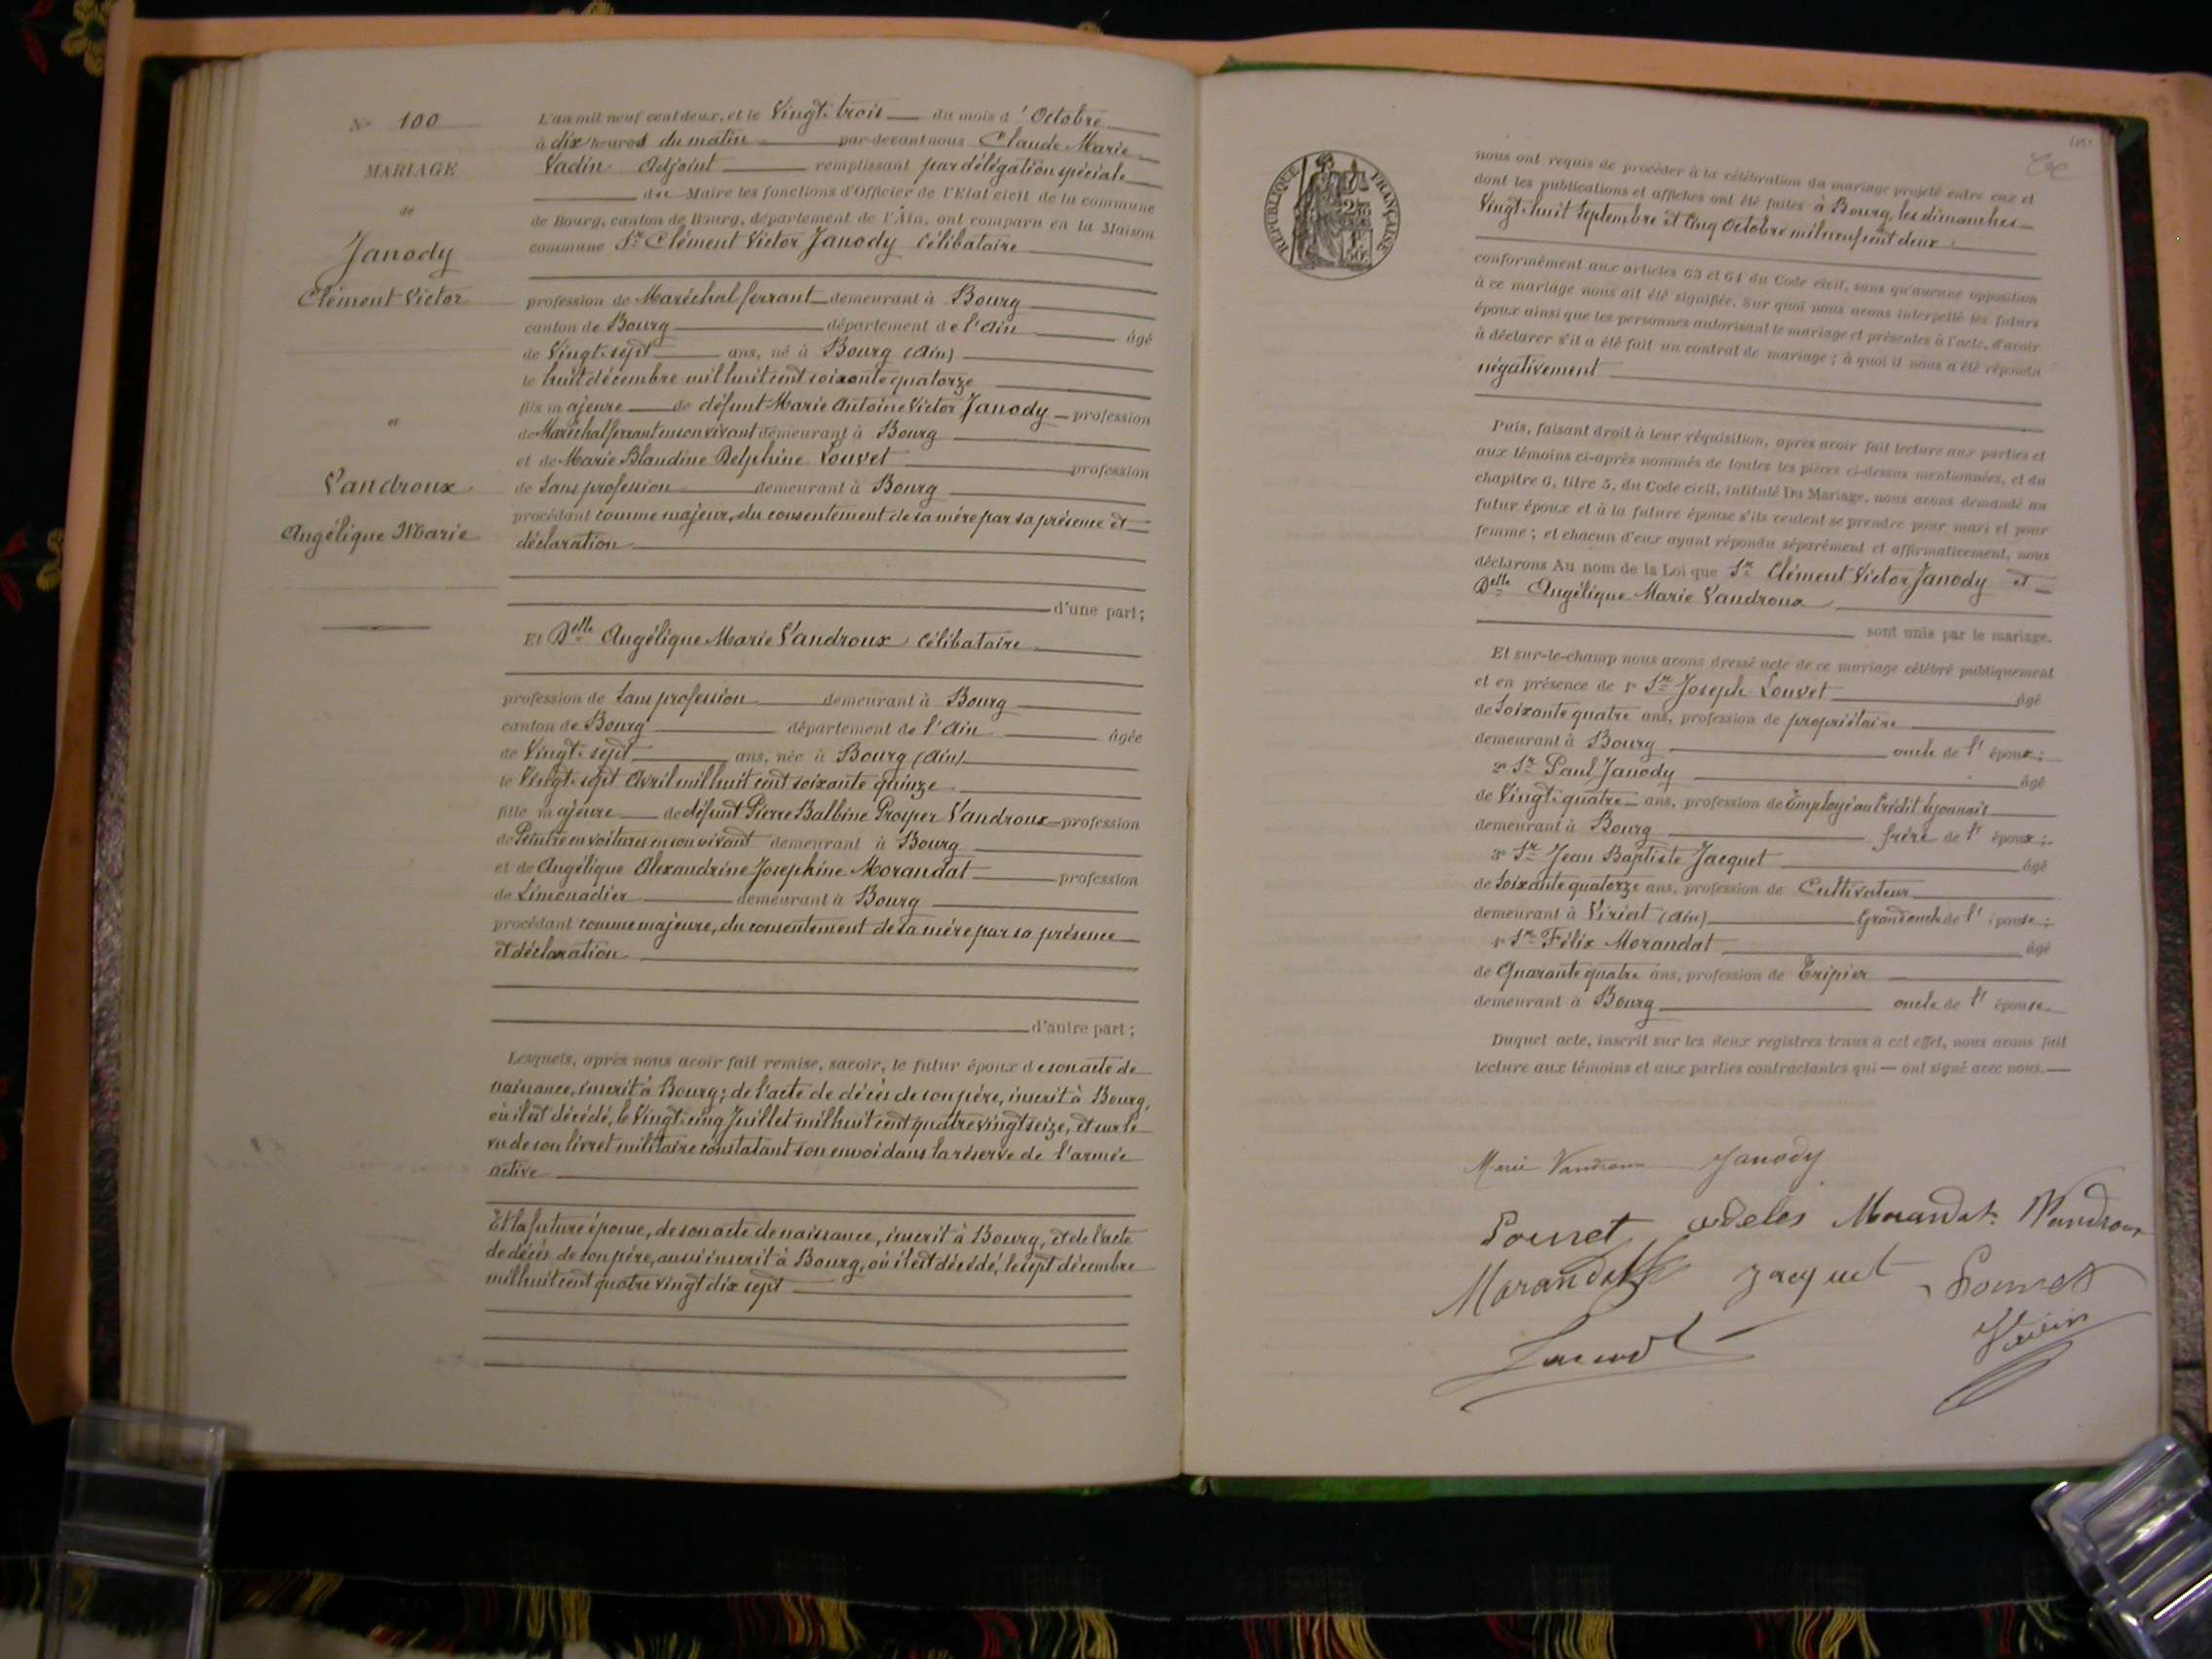 N° 100
MARIAGE
de
Janody
Clément Victor
et
Vandroux
Angélique Marie
L'an mil neuf cent deux, et le Vingt-trois du mois d'Octobre
à dix heures du matin par-devant nous Claude Marie
Vadin Adjoint remplissant par délégation spéciale
du Maire les fonctions d'Officier de l'Etat civil de la commune
de Bourg, canton de Bourg, département de l'Ain, ont comparu en la Maison
commune Sr Clément Victor Janody Célibataire
profession de Maréchal ferrant demeurant à Bourg
canton de Bourg département de l'Ain âgé
de Vingt-sept ans, né à Bourg (Ain)
le huit décembre mil huit cent soixante quatorze
fils majeure de défunt Marie Antoine Victor Janody profession
de Maréchal ferrant en son vivant demeurant à Bourg
et de Marie Blandine Delphine Louvet profession
de Sans profession demeurant à Bourg
procédant comme majeur, du consentement de sa mère par sa présence et
déclaration
d'une part;
Et Delle Angélique Marie Vandroux Célibataire
profession de Sans profession demeurant à Bourg
canton de Bourg département de l'Ain âgée
de Vingt-sept ans, née à Bourg (Ain)
le Vingt-sept Avril mil huit cent soixante quinze
fille majeure de défunt Pierre Balbine Prosper Vandroux profession
de Peintre en voitures en son vivant demeurant à Bourg
et de Angélique Alexandrine Joséphine Morandat profession
de Limonadier demeurant à Bourg
procédant comme majeure, du consentement de sa mère par sa présence
et déclaration
d'autre part;
Lesquels, après nous avoir fait remise, savoir, le futur époux de son acte de
naissance, inscrit à Bourg; de l'acte de décès de son père, inscrit à Bourg,
où il est décédé, le Vingt-cinq Juillet mil huit cent quatre vingt seize, et sur le
vu de son livret militaire constatant son envoi dans la réserve de l'armée
active
Et la future épouse, de son acte de naissance, inscrit à Bourg, et de l'acte
de décès de son père, aussi inscrit à Bourg, où il est décédé, le sept décembre
mil huit cent quatre vingt dix sept
RÉPUBLIQUE FRANÇAISE
nous ont requis de procéder à la célébration du mariage projeté entre eux et
dont les publications et affiches ont été faites à Bourg, les dimanches
Vingt-huit Septembre et Cinq Octobre mil neuf cent deux
conformément aux articles 63 et 64 du Code civil, sans qu'aucune opposition
à ce mariage nous ait été signifiée. Sur quoi nous avons interpellé les futurs
époux ainsi que les personnes autorisant le mariage et présentes à l'acte, d'avoir
à déclarer s'il a été fait un contrat de mariage; à quoi il nous a été répondu
négativement
Puis, faisant droit à leur réquisition, après avoir fait lecture aux parties et
aux témoins ci-après nommés de toutes les pièces ci-dessus mentionnées, et du
chapitre 6, titre 5, du Code civil, intitulé Du Mariage, nous avons demandé au
futur époux et à la future épouse s'ils veulent se prendre pour mari et pour
femme; et chacun d'eux ayant répondu séparément et affirmativement, nous
déclarons Au nom de la Loi que Sr Clément Victor Janody et
Delle Angélique Marie Vandroux
sont unis par le mariage.
Et sur-le-champ nous avons dressé acte de ce mariage célébré publiquement
et en présence de 1° Sr Joseph Louvet âgé
de Soixante quatre ans, profession de propriétaire
demeurant à Bourg oncle de l'époux;
2° Sr Paul Janody âgé
de Vingt-quatre ans, profession de Employé au Crédit Lyonnais
demeurant à Bourg frère de l'époux;
3° Sr Jean Baptiste Jacquet âgé
de Soixante quatorze ans, profession de Cultivateur
demeurant à Viriat (Ain) Grand oncle de l'épouse;
4° Sr Félix Morandat âgé
de Quarante quatre ans, profession de Tripier
demeurant à Bourg oncle de l'épouse
Duquel acte, inscrit sur les deux registres tenus à cet effet, nous avons fait
lecture aux témoins et aux parties contractantes qui ont signé avec nous.
Marie Vandroux Janody
Louvet Morandat Vandroux
Morandat Jacquet Louvet
Vadin